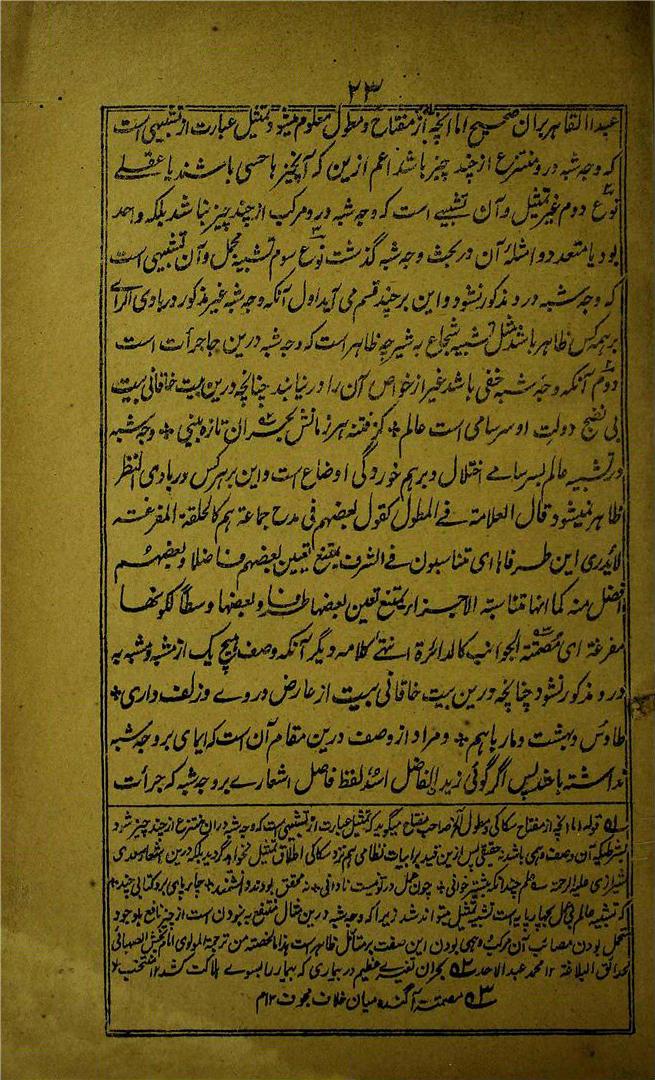 ۲۳
عبدالقاهر بران صحیح اما انچه از مفتاح و مطول معلوم میشود تمثیل عبارت از تشبیهی است
که وجه شبه درو منتزع از چند چیز باشد اعم ازین که آنچیز با حسی باشند یا عقلے
نوع دوم غیر تمثیل و آن تشبیهے است که وجه شبه درو مرکب از چند چیز نباشد بلکه واحد
بود یا متعدد و امثلهٔ آن در بحث وجه شبه گذشت نوع سوم تشبیه مجمل و آن تشبیهی است
که وجه شبه درو مذکور نشود و این بر چند قسم می آید اول آنکه وجه شبه غیر مذکور در بادی الرای
بر همه کس ظاهر باشد مثل تشبیه شجاع به شیر چه ظاهر است که وجه شبه درین جا جرأت است
دوم آنکه وجه شبه خفی باشد غیر از خواص آن را در نیابند چنانچه درین بیت خاقانی بیت
بی نضج دولت او سرسامی است عالم * کز فتنه هر زمانش بحران تازه بینی * وجه شبه
در تشبیه عالم بسرسامے اختلال و برهم خوردگی اوضاع است و این بر هر کس در بادی النظر
ظاهر نمیشود قال العلامة فے المطول کقول بعضهم فی مدح جماعة هم کالحلقة المفرغة
لایدری این طرفاها ای متناسبون فے الشرف یمتنع تعیین بعضهم فاضلا و بعضهم
افضل منه کما انها متناسبة الاجزاء یمتنع تعین بعضها طرفا و بعضها وسطا لکونها
مفرغة ای مصمتة الجوانب کالدائرة انتهے کلامه دیگر آنکه وصف هیچ یک از مشبه و مشبه به
درو مذکور نشود چنانچه درین بیت خاقانی بیت از عارض و روے و زلف داری *
طاوس و بهشت و مار باهم * و مراد از وصف درین مقام آن است که ایمای بر وجه شبه
نداشته باشد پس اگر گوئی زید الفاضل اسد لفظ فاضل اشعارے بر وجه شبه که جرأت
۵۱ قوله اما انچه از مفتاح سکاکی و مطول الخ صاحب مفتاح میگوید که تمثیل عبارت از تشبیهی است که وجه شبه دران منتزع از چند چیز شود
بشرطیکه آن وصف وهمی باشد نه حقیقی پس ازین قید بر ابیات نظامی هم نزد سکاکی اطلاق تمثیل نخواهد گردید بلکه درین اشعار سعدی
شیرازی علیه الرحمة ے علم چندانکه بیشتر خوانی * چون عمل در تو نیست نادانی * نه محقق بود نه دانشمند * چارپای برو کتابی چند *
که تشبیه عالم بی عمل بچارپایه است تشبیه تمثیل میتواند شد زیرا که وجه شبه درین مثال منتفع نبودن است از چیز نافع باوجود
تحمل بودن مصائب آن مرکب وهمی بودن این صفت بر متأمل ظاهر است هذا ما لخصته من ترجمة المولوی امام بخش الصهبائی
لحدائق البلاغة ۱۲ محمد عبد الاحد ۵۲ بحران تغیرے عظیم در بیماری که بیمار را بسوے هلاکت کشد ۱۲ منتخب
۵۳ مصمتة آگنده میان خلاف مجوف ۱۲م